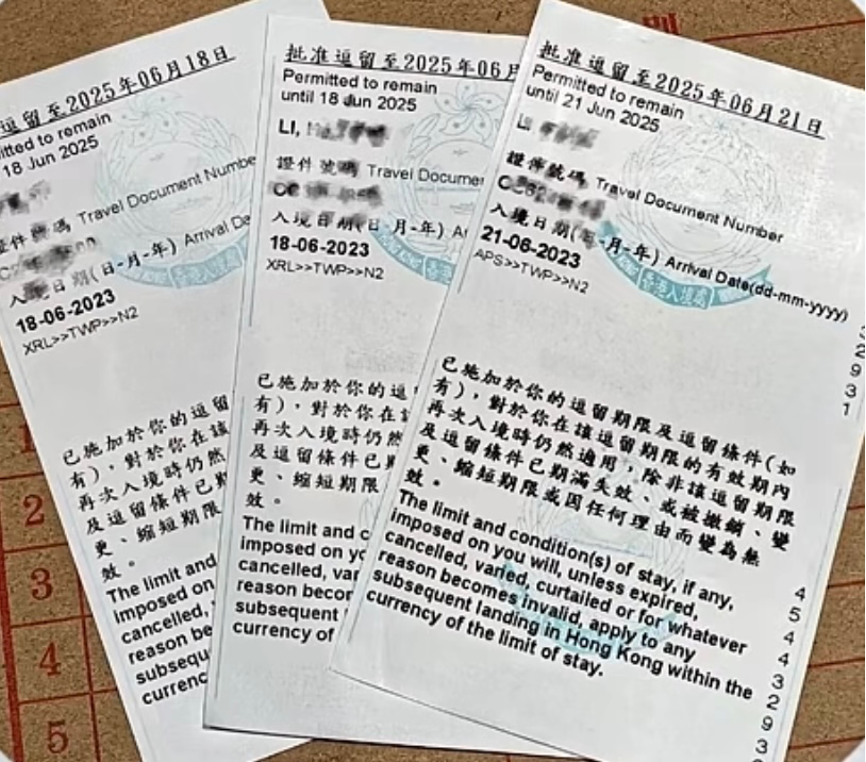 逗留至2025年06月18日
itted to remain
18 Jun 2025
證件號碼 Travel Document Numbe
入境日期(日-月-年) Arrival Da
18-06-2023
XRL>>TWP>>N2
已施加於你的逗留
有)，對於你在該
再次入境時仍然
及逗留條件已期
更、縮短期限
效。
The limit and
imposed on
cancelled,
reason be
subsequ
currenc
批准逗留至2025年06月
Permitted to remain
until 18 Jun 2025
LI,
證件號碼 Travel Docume
入境日期(日-月-年) Ar
18-06-2023
XRL>>TWP>>N2
已施加於你的逗
有)，對於你在該
再次入境時仍然
及逗留條件已期
更、縮短期限
效。
The limit and c
imposed on yo
cancelled, var
reason becor
subsequent
currency of
批准逗留至2025年06月21日
Permitted to remain
until 21 Jun 2025
LI
證件號碼 Travel Document Number
入境日期(日-月-年) Arrival Date(dd-mm-yyyy)
21-06-2023
APS>>TWP>>N2
香港入境處
已施加於你的逗留期限及逗留條件(如
有)，對於你在該逗留期限的有效期內
再次入境時仍然適用，除非該逗留期限
及逗留條件已期滿失效、或被撤銷、變
更、縮短期限或因任何理由而變為無
效。
The limit and condition(s) of stay, if any,
imposed on you will, unless expired,
cancelled, varied, curtailed or for whatever
reason becomes invalid, apply to any
subsequent landing in Hong Kong within the
currency of the limit of stay.
2
9
3
1
4
5
4
4
3
2
9
3
2
3
4
5